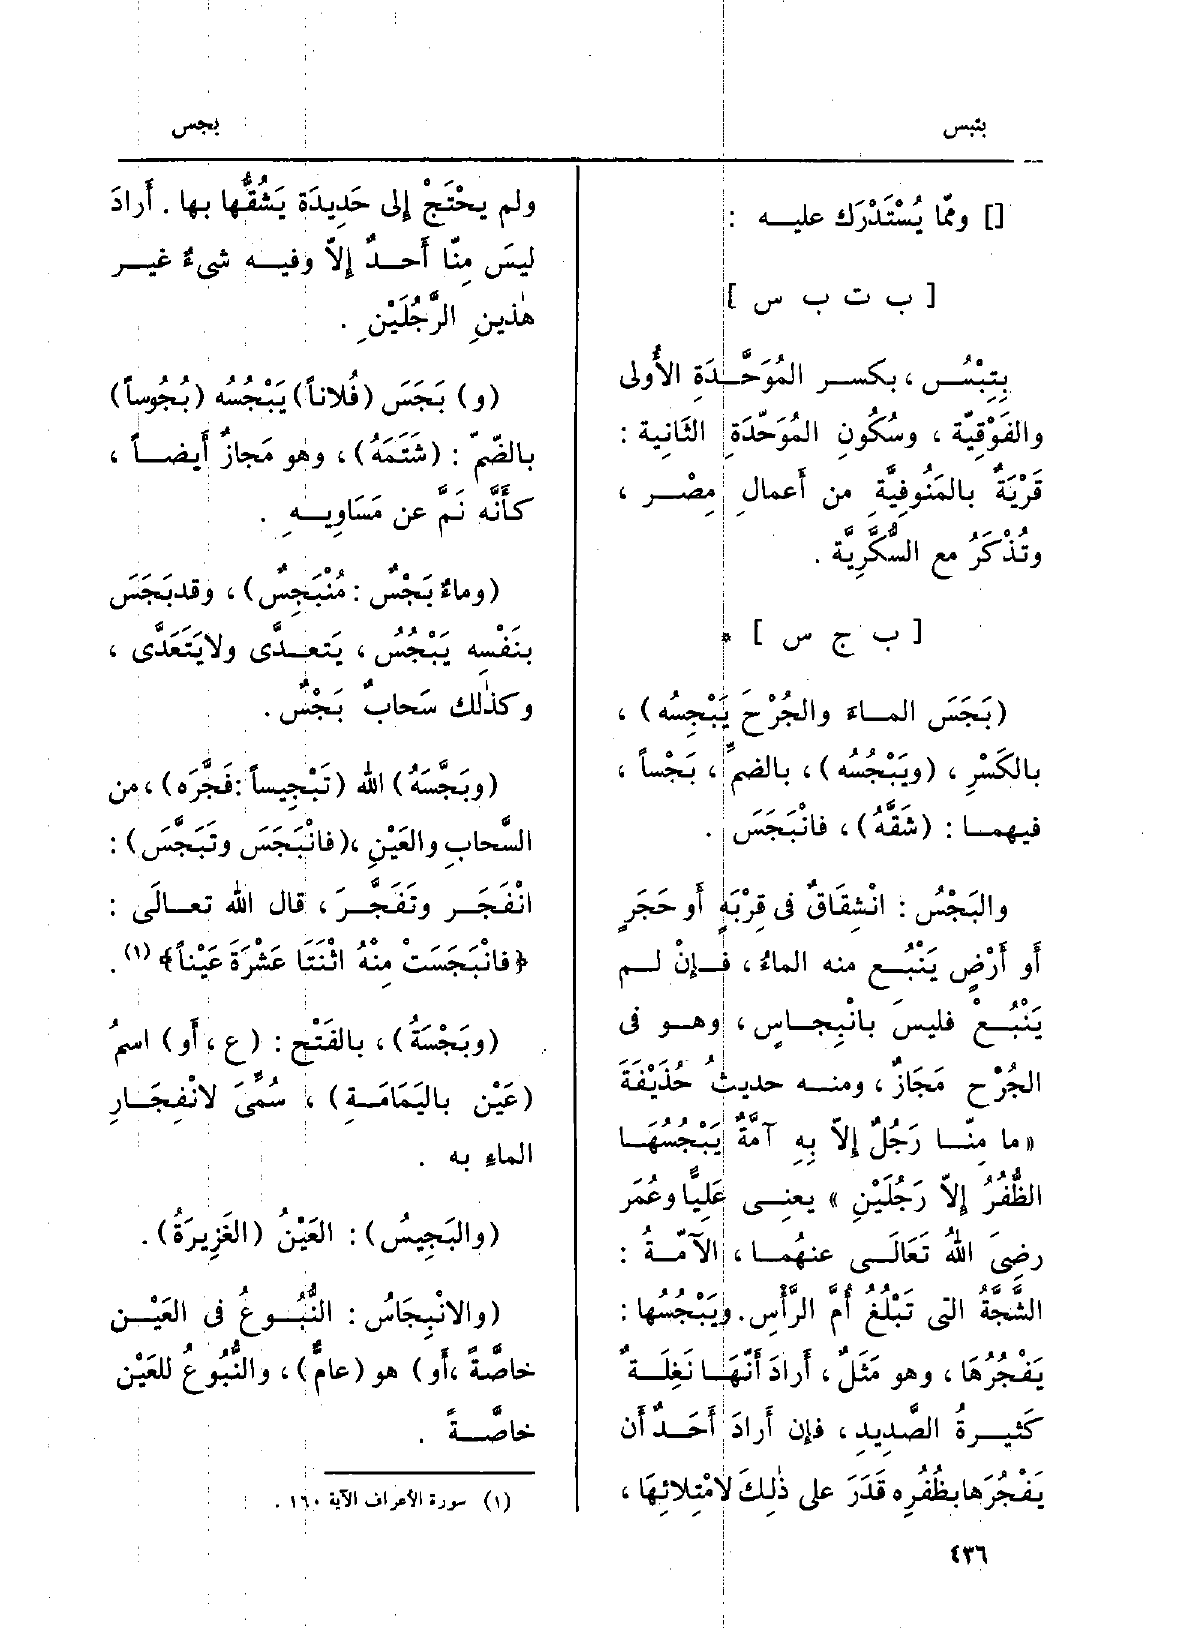 بتبس
بجس
[] ومّا يُسْتَدْرَك عليـه :
[ ب ت ب س ]
بِتِبْسُ ، بكسـر المُوَحَّـدَةِ الأُولى
والفَوْقِيَّة ، وسُكُونِ المُوَحَّدَةِ الثانِية :
قَرْيَةٌ بالمَنُوفِيَّةِ من أَعمالِ مِصْـر ،
وتُذْكَرُ مع السُّكَّرِيَّة .
[ ب ج س ] *
(بَجَسَ المـاءَ والجُرْحَ يَبْجِسُه) ،
بالكَسْرِ ، (ويَبْجُسُه) ، بالضمِّ ، بَجْساً ،
فيهمـا : (شَقَّهُ) ، فانْبَجَسَ .
والبَجْسُ : انْشِقاقٌ فى قِرْبَةٍ أَو حَجَرٍ
أَو أَرْضٍ يَنْبُـع منه الماءُ ، فـإِنْ لـم
يَنْبُـعْ فليسَ بانْبِجـاسٍ ، وهـو فى
الجُرْحِ مَجَازٌ ، ومنـه حديثُ حُذَيْفَةَ
« ما مِنّـا رَجُلٌ إِلاّ بِهِ آمَّةٌ يَبْجُسُهَـا
الظُّفُرُ إِلاّ رَجُلَيْنِ » يعنِـى عَلِيًّا وعُمَر
رضِىَ اللهُ تَعَالَـى عنهُمـا ، الآمَّـةُ :
الشَّجَّةُ التى تَبْلُغ أُمَّ الرَّأْسِ. ويَبْجُسُها :
يَفْجُرُهَا ، وهو مَثَلٌ ، أَرادَ أَنَّهَـا نَغِلَـةٌ
كَثيـرةُ الصَّديدِ ، فإِن أَرادَ أَحَـدٌ أَن
يَفْجُرَها بظُفُرِه قَدَرَ على ذٰلِكَ لامْتِلائِهَا ،
ولم يحْتَجْ إِلى حَدِيدَة يَشُقُّها بها . أَرادَ
ليسَ مِنّا أَحـدٌ إِلاّ وفيـه شىءٌ غيـر
هٰذينِ الرَّجُلَيْنِ .
(و) بَجَسَ (فُلاناً) يَبْجُسُه (بُجُوساً)
بالضّمّ : (شَتَمَهُ) ، وهو مَجازٌ أَيضـاً ،
كأَنَّه نَمَّ عن مَسَاوِيـهِ .
(وماءٌ بَجْسٌ : مُنْبَجِسٌ) ، وقد بَجَسَ
بنَفْسِه يَبْجُسُ ، يَتعـدَّى ولا يَتَعَدَّى ،
وكذٰلك سَحابٌ بَجْسٌ .
(وبَجَّسَهُ) الله (تَبْجِيساً : فَجَّرَه) ، من
السَّحابِ والعَيْنِ ، (فانْبَجَسَ وتَبَجَّسَ) :
انْفَجَـر وتَفَجَّـرَ ، قال الله تعـالَى :
﴿فانْبَجَسَتْ مِنْهُ اثْنَتَا عَشْرَةَ عَيْناً﴾ (١) .
(وبَجْسَةُ) ، بالفَتْح : (ع ، أَو) اسمُ
(عَيْن باليَمَامَـةِ) ، سُمِّىَ لانْفِجَـارِ
الماءِ به .
(والبَجِيسُ) : العَيْنُ (الغَزِيرَةُ) .
(والانْبِجَاسُ : النُّبُـوعُ فى العَيْـن
خاصَّةً ، أَو) هو (عامٌّ) ، والنُّبُوعُ للعَيْن
خاصَّـةً .
(١) سورة الأعراف الآية ١٦٠ .
٤٣٦